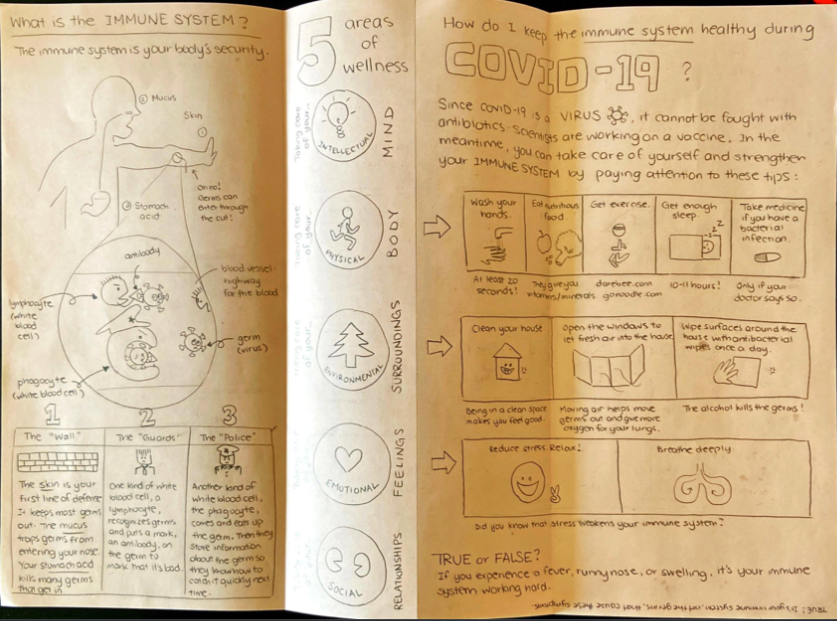 What is the IMMUNE SYSTEM?
The immune system is your body's security.
① Mucus
Skin
①
Oh no!
Germs can
enter through
the cut!
② Stomach
acid
antibody
blood vessel-
highway
for the blood
lymphocyte
(white
blood
cell)
germ
(virus)
phagocyte
(white blood cell)
1
The "Wall"
The skin is your
first line of defense
It keeps most germs
out. The mucus
traps germs from
entering your nose.
Your stomach acid
kills many germs
that get in
2
The "Guards"
One kind of white
blood cell, a
lymphocyte,
recognizes germs
and puts a mark,
an antibody, on
the germ to
mark that it's bad.
3
The "Police"
Another kind of
white blood cell,
the phagocyte,
comes and eats up
the germ. Then they
store information
about the germ so
they know how to
catch it quickly next
time.
5 areas
of
wellness
Taking care
of your...
INTELLECTUAL
MIND
Taking care
of your...
PHYSICAL
BODY
Taking care
of your...
ENVIRONMENTAL
SURROUNDINGS
EMOTIONAL
FEELINGS
SOCIAL
RELATIONSHIPS
How do I keep the immune system healthy during
COVID-19?
Since COVID-19 is a VIRUS, it cannot be fought with
antibiotics. Scientists are working on a vaccine. In the
meantime, you can take care of yourself and strengthen
your IMMUNE SYSTEM by paying attention to these tips:
Wash your
hands.
At least 20
seconds!
Eat nutritious
food
They give you
vitamins/minerals
Get exercise.
darebee.com
gonoodle.com
Get enough
sleep.
zzz
10-11 hours!
Take medicine
if you have a
bacterial
infection.
Only if your
doctor says so.
Clean your house
Being in a clean space
makes you feel good.
Open the windows to
let fresh air into the house
Moving air helps move
germs out and give more
oxygen for your lungs.
Wipe surfaces around the
house with antibacterial
wipes once a day.
The alcohol kills the germs!
Reduce stress. Relax!
Breathe deeply
Did you know that stress weakens your immune system?
TRUE or FALSE?
If you experience a fever, runny nose, or swelling, it's your immune
system working hard.
TRUE! It's your immune system, not the germs, that cause these symptoms.